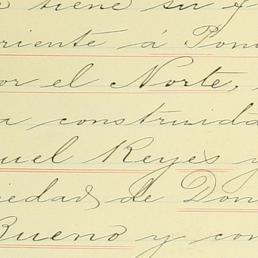 tiene su f
riente á Poni
or el Norte,
a construida
uel Reyes y
iedad de Don
Bueno y con